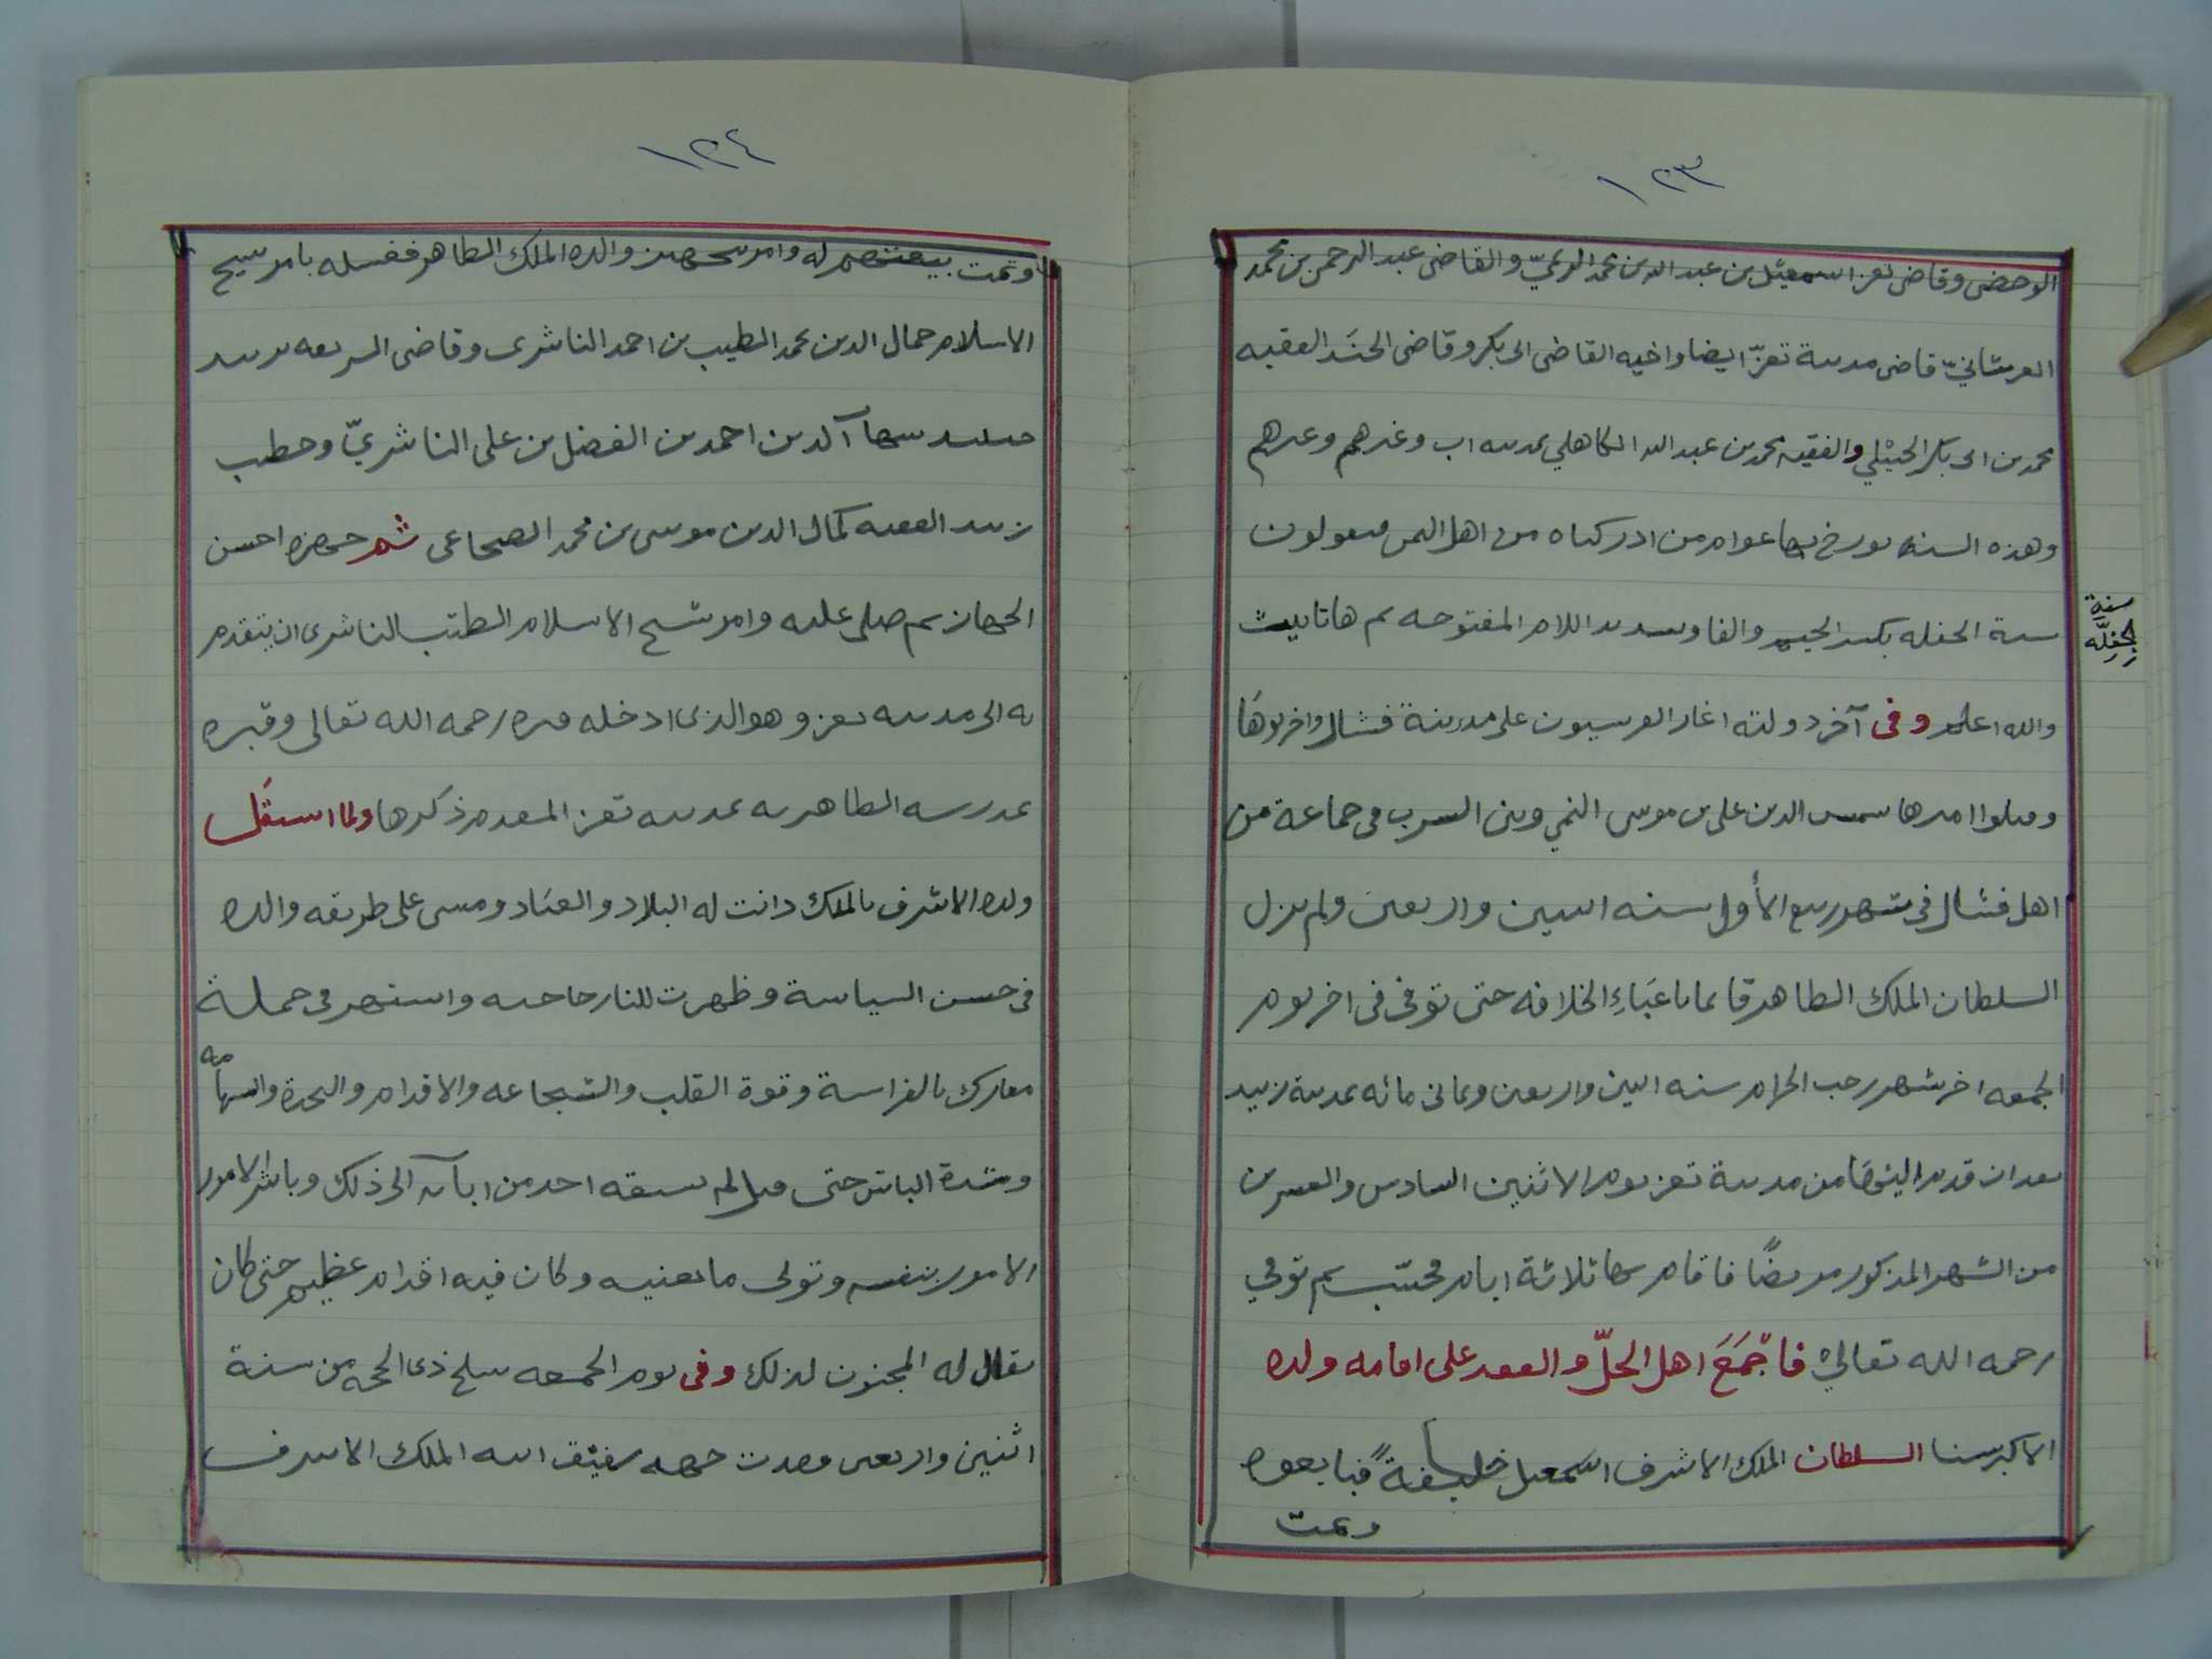 ١٢٣
الوحضى وقاضى تعز اسمعيل بن عبد الله بن محمد الريميّ والقاضى عبد الرحمن بن محمد
العرشانيّ قاضى مدينة تعزّ ايضا واخيه القاضى ابى بكر وقاضى الجنَد الفقيه
محمد بن ابى بكر الحيْلي والفقيه محمد بن عبد الله الكاهلي بمدينه اب وغيرهم وغيرهم
وهذه السنه يورخ بها عوام من ادركناه من اهل اليمن فيقولون
سنة الجفله بكسر الجيم والفا وتشديد اللام المفتوحه ثم ها تانيث
سنة
الجِفِلَّه
والله اعلم وفى آخر دولته اغار القرشيون على مدينة فشال واخربوهَا
وقتلوا اميرها شمس الدين على بن موسى بن السرب فى جماعة من
اهل فشال فى شهر ربيع الأول سنه اثنين واربعين ولم يزل
السلطان الملك الظاهر قائما باعبَاءِ الخلافه حتى توفى فى اخر يوم
الجمعه اخر شهر رجب الحرام سنه اثنين واربعين وثمانى مائه بمدينة زبيد
بعد ان قدم اليهَا من مدينة تعز يوم الاثنين السادس والعشرين
من الشهر المذكور مريضًا فاقام بها ثلاثة ايام فحسب ثم توفي
رحمه الله تعالى فاجَّمَعَ اهل الحلّ والعقد على اقامه ولده
الاكبر سنا السلطان الملك الاشرف اسمعيل خليفةً فبايعوه
وتمت
١٢٤
وتمت بيعتهم له وامر بتجهيز والده الملك الظاهر فغسله بامر شيخ
الاسلام جمال الدين محمد الطيب بن احمد الناشرى وقاضى الشريعه بزبيد
شهاب الدين احمد بن الفضل بن على الناشريّ وخطيب
زبيد الفقيه كمال الدين موسى بن محمد الضجاعى ثم جهزه احسن
الجهاز ثم صلى عليه وامر شيخ الاسلام الطيّب الناشرى ان يتقدم
به الى مدينه تعز وهو الذى ادخله قبره رحمه الله تعالى وقبره
بمدرسه الظاهريه بمدينه تعز المقدم ذكرها ولما استقَل
ولده الاشرف بالملك دانت له البلاد والعبَاد ومشى على طريقه والده
فى حسن السياسة وظهرت للناس واشتهر فى جملة
معارك بالفراسة وقوة القلب والشجاعه والاقدام والنجدة والشهامه
وشدة الباس حتى قيل لم يسبقه احد من ابآئه الى ذلك وباشر الامور
الامور بنفسه وتولى ما يعنيه وكان فيه اقدام عظيم حتى كان
يقال له المجنون لذلك وفى يوم الجمعه سلخ ذى الحجه من سنة
اثنين واربعين قصدت جهه شفيق ابنه الملك الاشرف